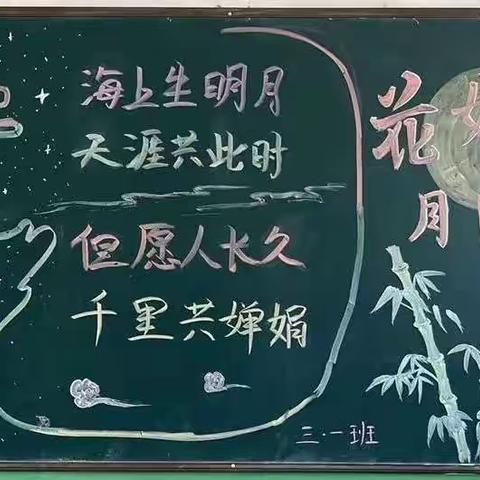 海上生明月
天涯共此时
但愿人长久
千里共婵娟
花好
月
三·一班